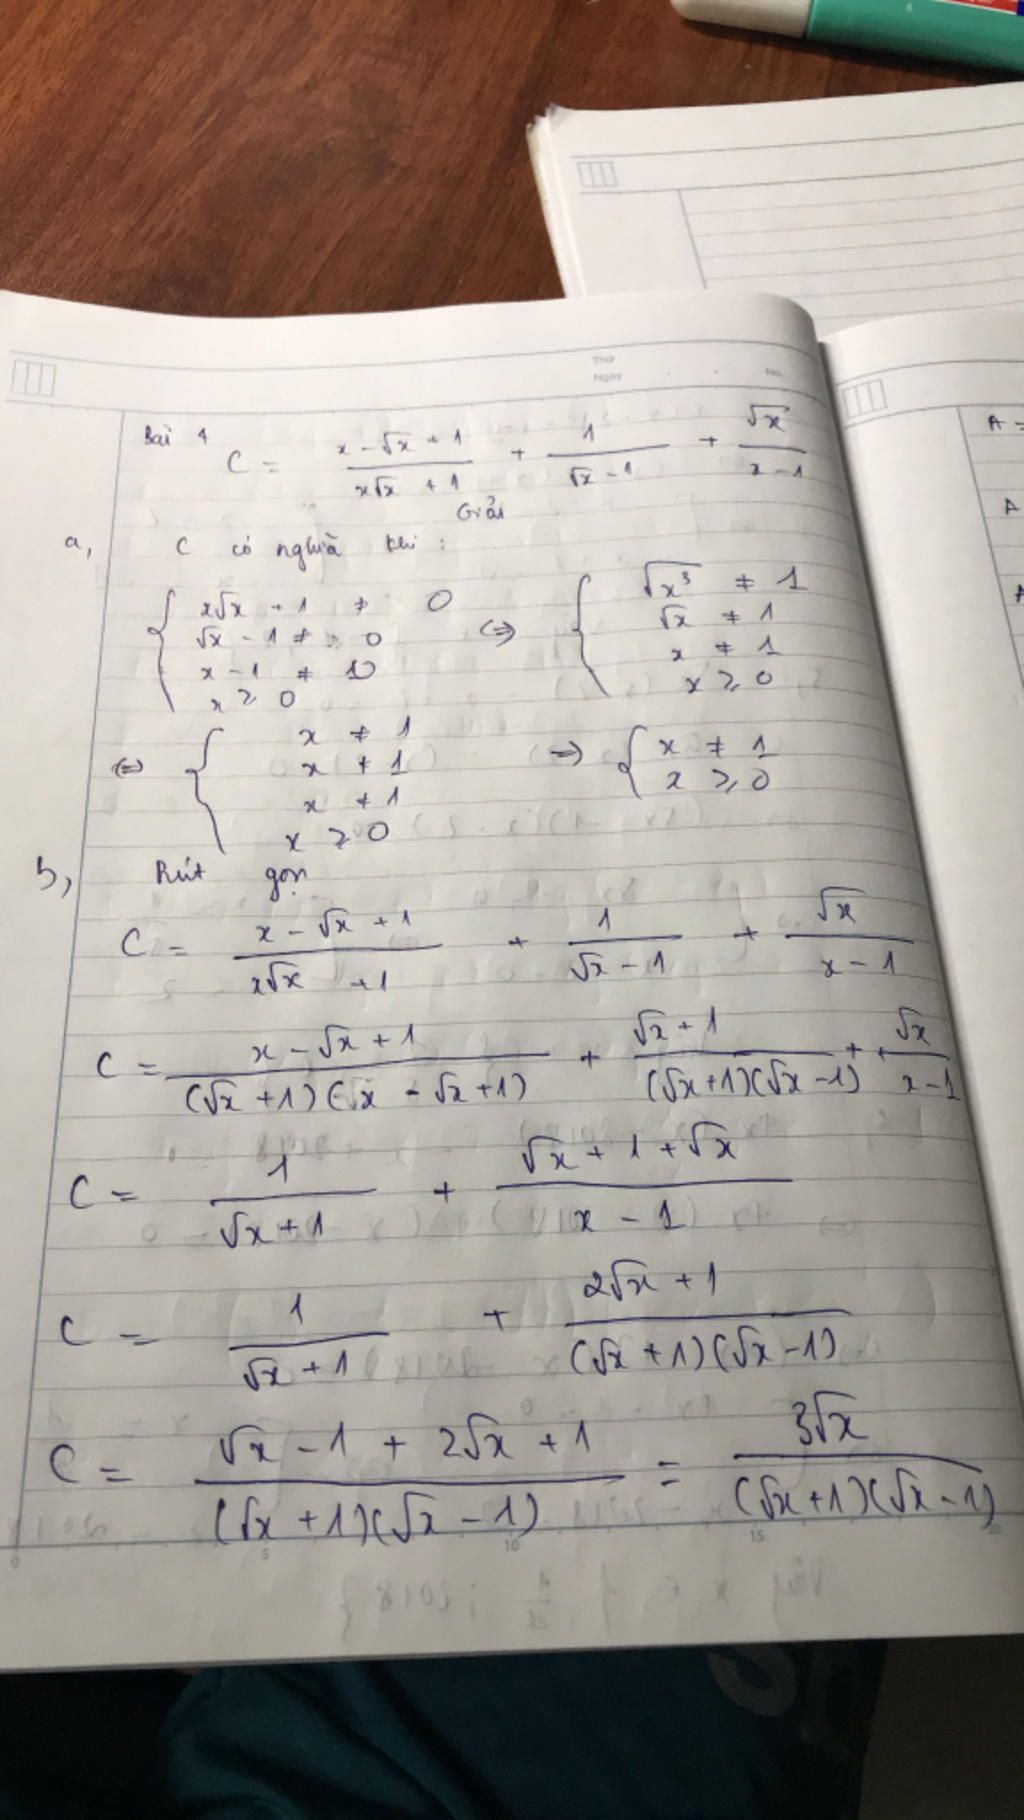 Thứ
Ngày . . No.
Bài 4 C = (x - √x + 1)/(x√x + 1) + 1/(√x - 1) + √x/(x - 1)
Giải
a, C có nghĩa khi :
{ x√x + 1 ≠ 0 ⇔ { √x³ ≠ 1
√x - 1 ≠ 0 √x ≠ 1
x - 1 ≠ 0 x ≠ 1
x ≥ 0 x ≥ 0
⇔ { x ≠ 1 ⇒ { x ≠ 1
x ≠ 1 x ≥ 0
x ≠ 1
x ≥ 0
b, Rút gọn
C = (x - √x + 1)/(x√x + 1) + 1/(√x - 1) + √x/(x - 1)
C = (x - √x + 1)/((√x + 1)(x - √x + 1)) + (√x + 1)/((√x + 1)(√x - 1)) + √x/(x - 1)
C = 1/(√x + 1) + (√x + 1 + √x)/(x - 1)
C = 1/(√x + 1) + (2√x + 1)/((√x + 1)(√x - 1))
C = (√x - 1 + 2√x + 1)/((√x + 1)(√x - 1)) = 3√x/((√x + 1)(√x - 1))
0 5 10 15 20
A =
A